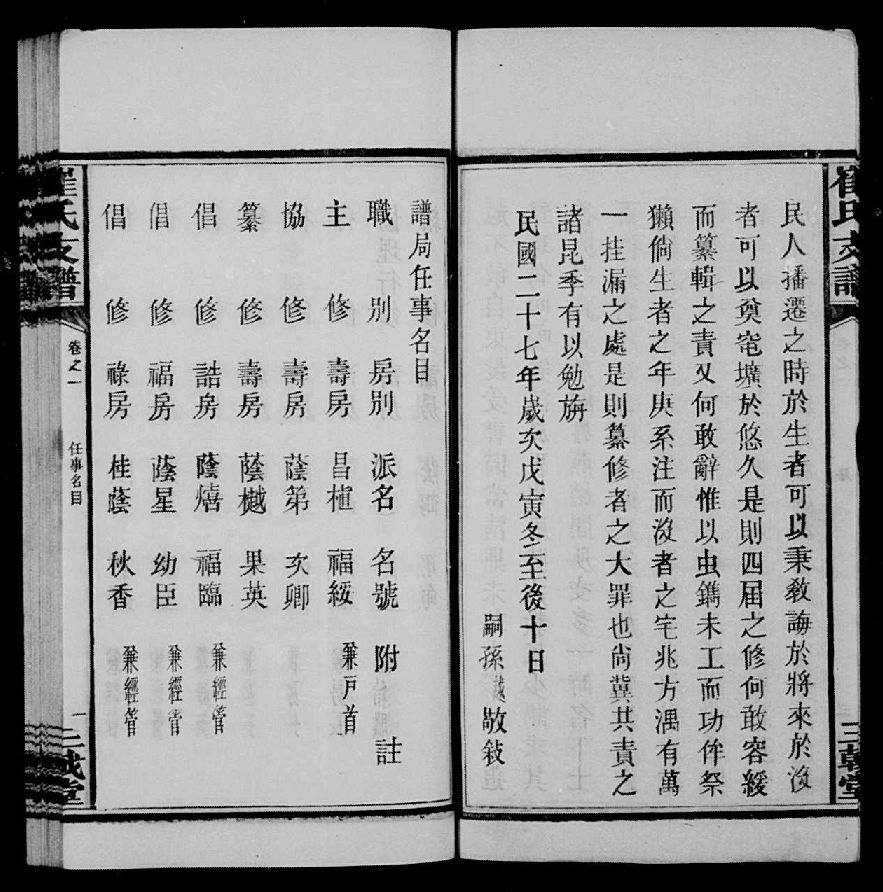 崔氏支譜
三戟堂
民人播遷之時於生者可以秉教誨於將來於沒
者可以奠窀壙於悠久是則四屆之修何敢容緩
而纂輯之責又何敢辭惟以虫鐫未工而功侔祭
獺倘生者之年庚系注而沒者之宅兆方澫有萬
一挂漏之處是則纂修者之大罪也尚冀其責之
諸昆季有以勉旃
民國二十七年歲次戊寅冬至後十日
嗣孫 敬敍
譜局任事名目
職別 房別 派名 名號 附註
主修 壽房 昌植 福綏 兼戸首
協修 壽房 蔭第 次卿
纂修 壽房 蔭樾 果英
倡修 誥房 蔭熺 福臨 兼經管
倡修 福房 蔭星 幼臣 兼經管
倡修 祿房 桂蔭 秋香 兼經管
崔氏支譜 卷之一 任事名目 一 三戟堂